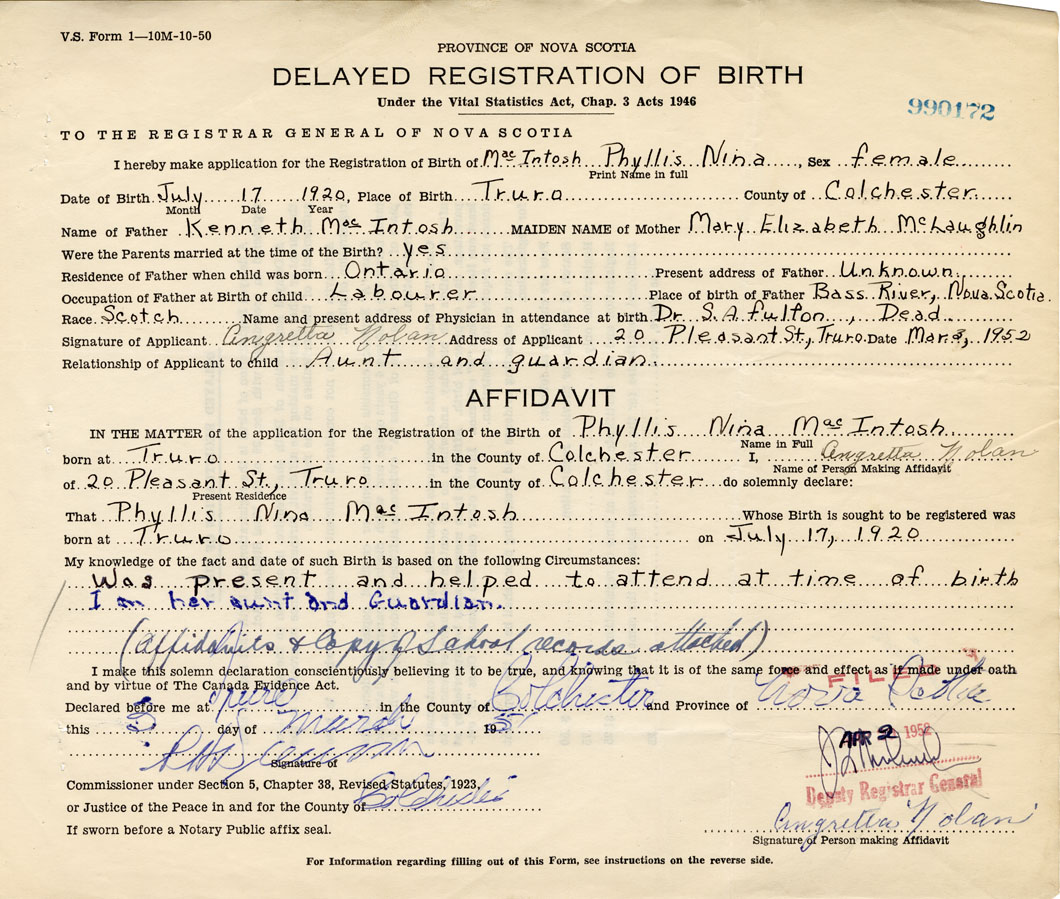 V.S. Form 1—10M-10-50
PROVINCE OF NOVA SCOTIA
DELAYED REGISTRATION OF BIRTH
Under the Vital Statistics Act, Chap. 3 Acts 1946
990172
TO THE REGISTRAR GENERAL OF NOVA SCOTIA
I hereby make application for the Registration of Birth of Mac Intosh Phyllis Nina, Sex female
Print Name in full
Date of Birth July 17 1920, Place of Birth Truro County of Colchester
Month Date Year
Name of Father Kenneth Mac Intosh MAIDEN NAME of Mother Mary Elizabeth McLaughlin
Were the Parents married at the time of the Birth? yes
Residence of Father when child was born Ontario Present address of Father Unknown
Occupation of Father at Birth of child Labourer Place of birth of Father Bass River, Nova Scotia.
Race Scotch Name and present address of Physician in attendance at birth Dr S.A. Fulton, Dead
Signature of Applicant Angretta Nolan Address of Applicant 20 Pleasant St., Truro Date Mar 3, 1952
Relationship of Applicant to child Aunt and guardian.
AFFIDAVIT
IN THE MATTER of the application for the Registration of the Birth of Phyllis Nina Mac Intosh
Name in Full
born at Truro in the County of Colchester I, Angretta Nolan
Name of Person Making Affidavit
of 20 Pleasant St., Truro in the County of Colchester do solemnly declare:
Present Residence
That Phyllis Nina Mac Intosh Whose Birth is sought to be registered was
born at Truro on July 17, 1920
My knowledge of the fact and date of such Birth is based on the following Circumstances:
Was present and helped to attend at time of birth
I am her aunt and Guardian.
(Affidavits & Copy of School records attached)
I make this solemn declaration conscientiously believing it to be true, and knowing that it is of the same force and effect as if made under oath
and by virtue of The Canada Evidence Act.
FILED
Declared before me at Truro in the County of Colchester and Province of Nova Scotia
this 3 day of March 19
APR 2 1952
Signature of
Commissioner under Section 5, Chapter 38, Revised Statutes, 1923,
Deputy Registrar General
or Justice of the Peace in and for the County of Colchester
Angretta Nolan
If sworn before a Notary Public affix seal.
Signature of Person making Affidavit
For Information regarding filling out of this Form, see instructions on the reverse side.